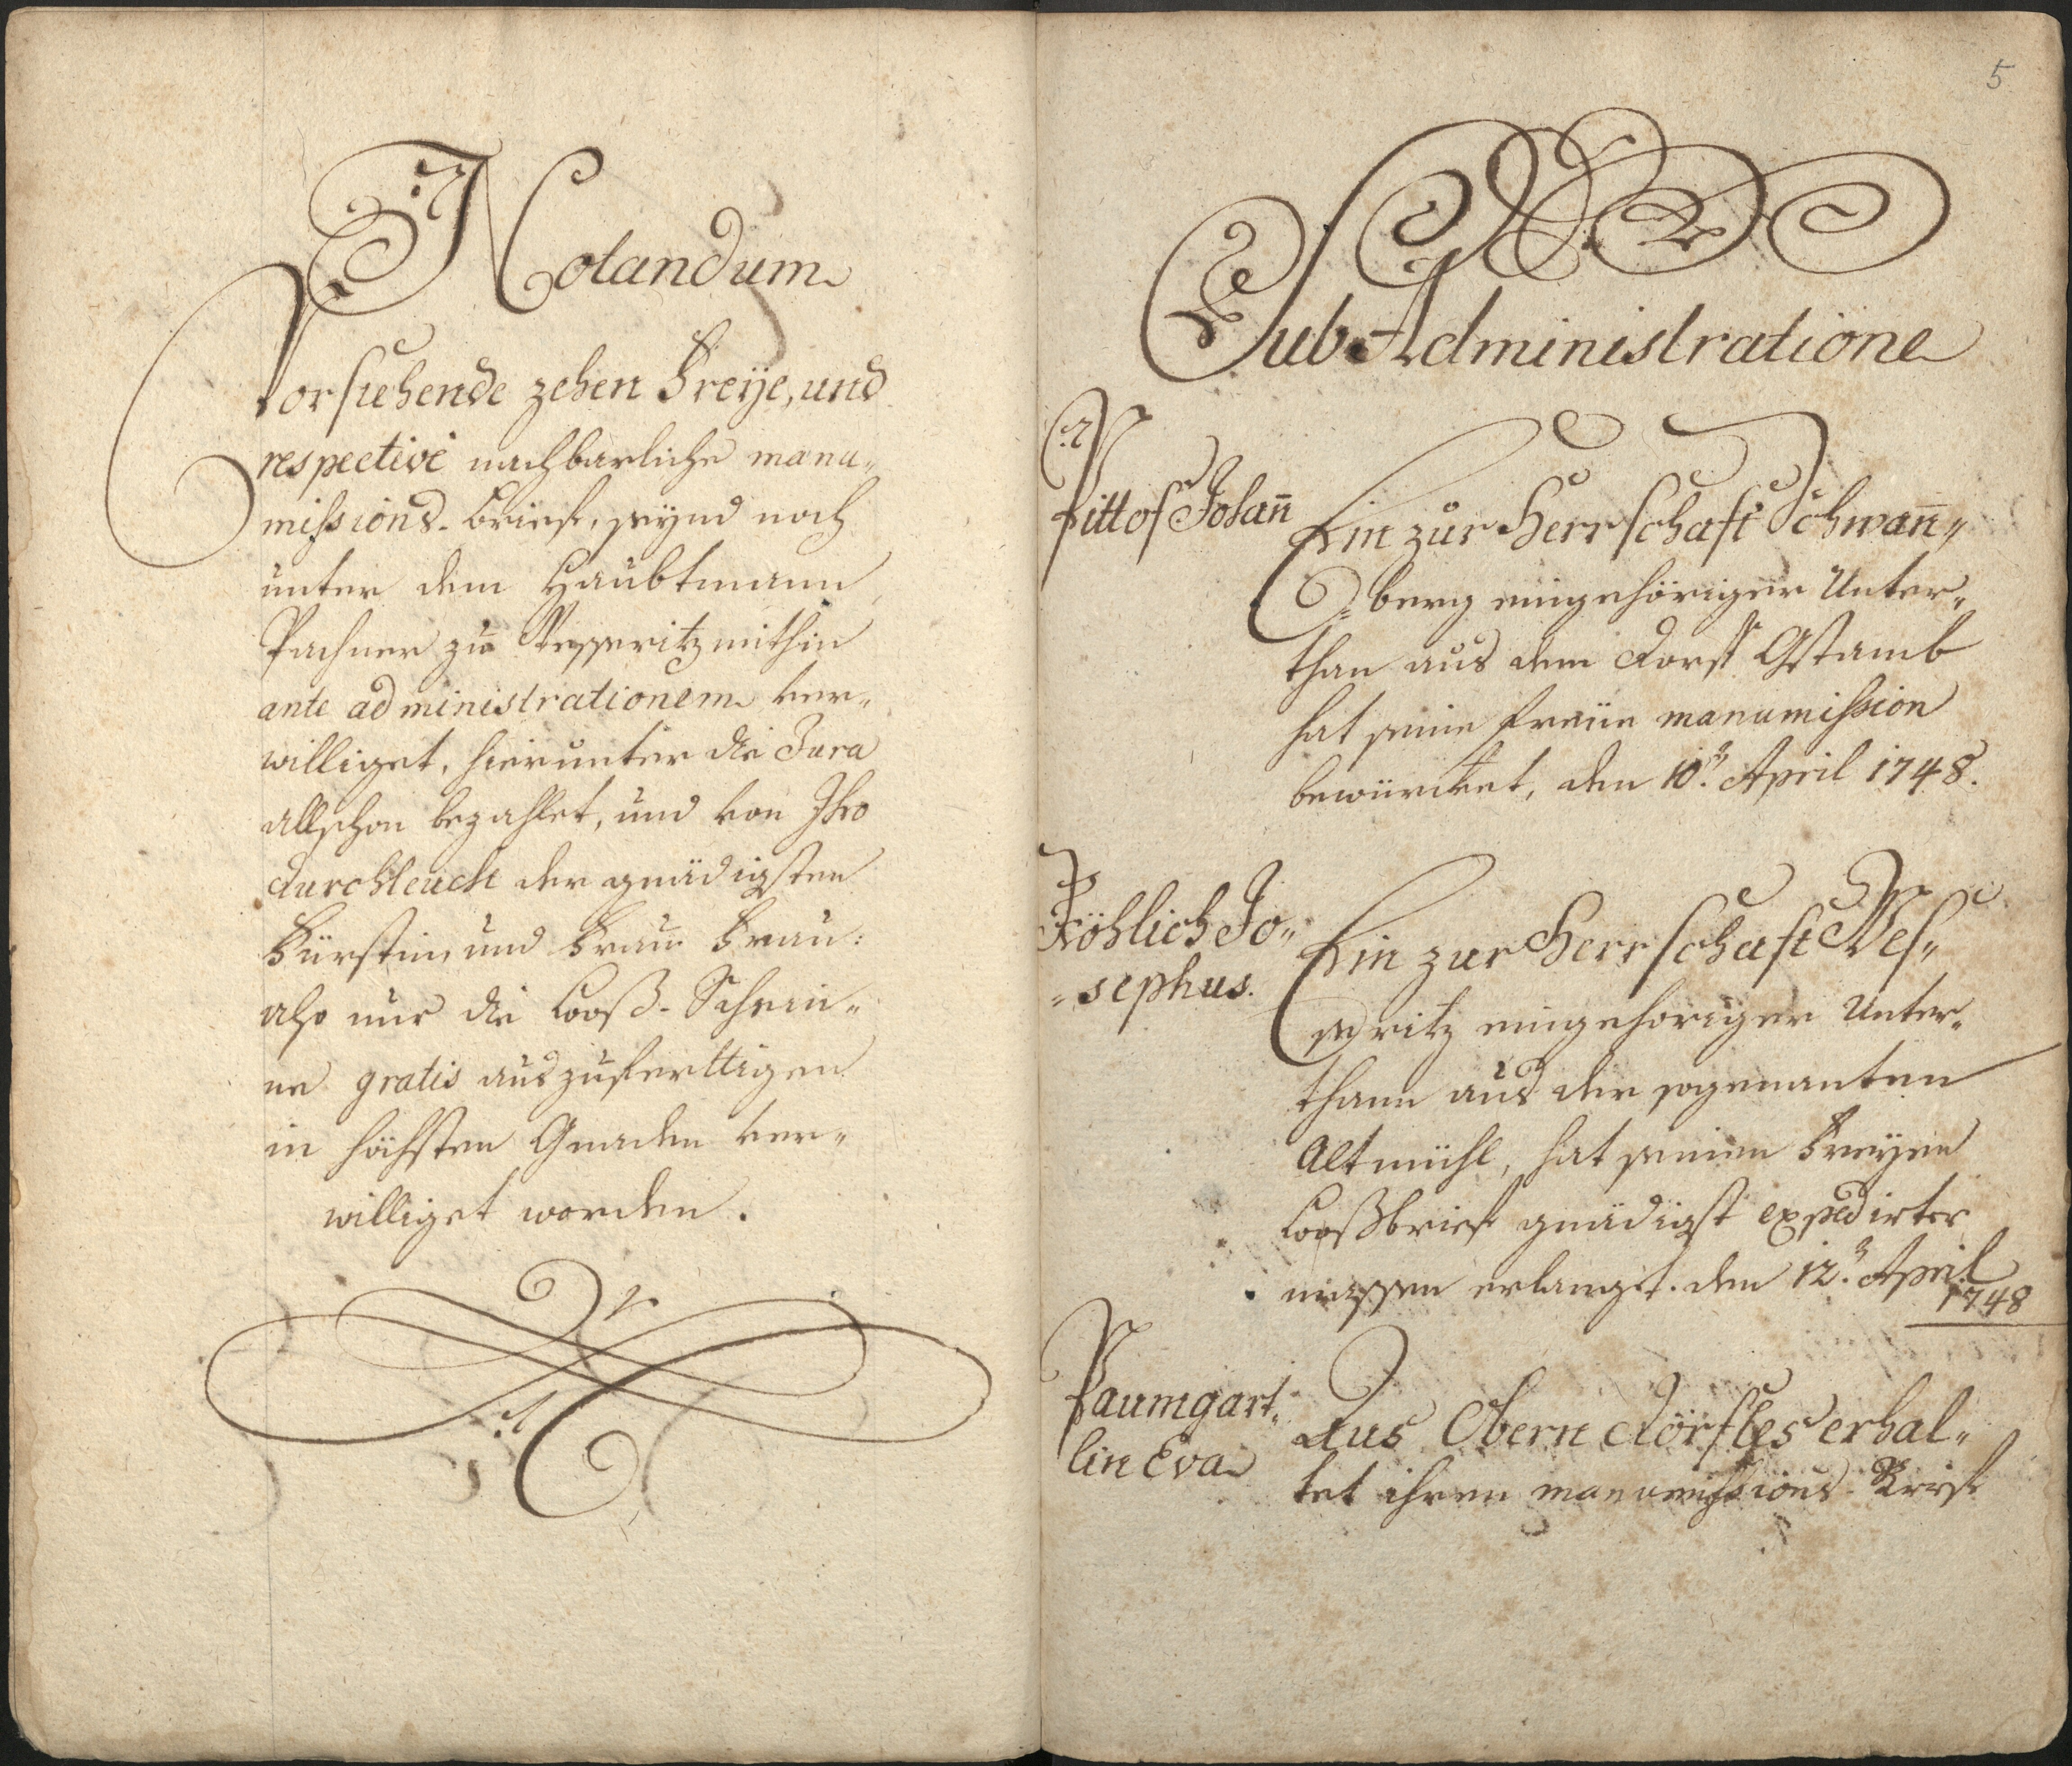 Notandum
Vorstehende zehen Freÿe, und
respectivé nachbarliche manu„
missions-brieff, seÿnd noch
unter dem Haubtmann
Pachner zu Wesseritz mithin
ante administrationem ver„
williget, hierunter die Jura
allschon bezahlet, und von Ihro
durchleucht der gnädigsten
Fürstin und Frauen Frau:
also nur die Looß-Schein„
ne gratis auszuferttigen
in höchsten Gnaden ver„
williget worden.
5
Sub Administratione
Pittof Johan̄
Ein zur Herrschaft Schwan̄„
„berg eingehöriger Unter„
than aus dem dorff Gstamb
hat seine freÿe manumission
bewürcket, den 10.ⁿ April 1748.
Fröhlich Jo„
„sephus.
Ein zur Herrschaft Wes„
seritz eingehöriger Unter„
thann aus der sogenanten
Altmühl, hat seinen Freÿen
Looßbrief gnädigst expedirter
massen erlanget. den 12.ⁿ April
1748
Paumgart„
lin Eva
Aus Obern dörfles erhal„
tet ihren manumissions-Brieff